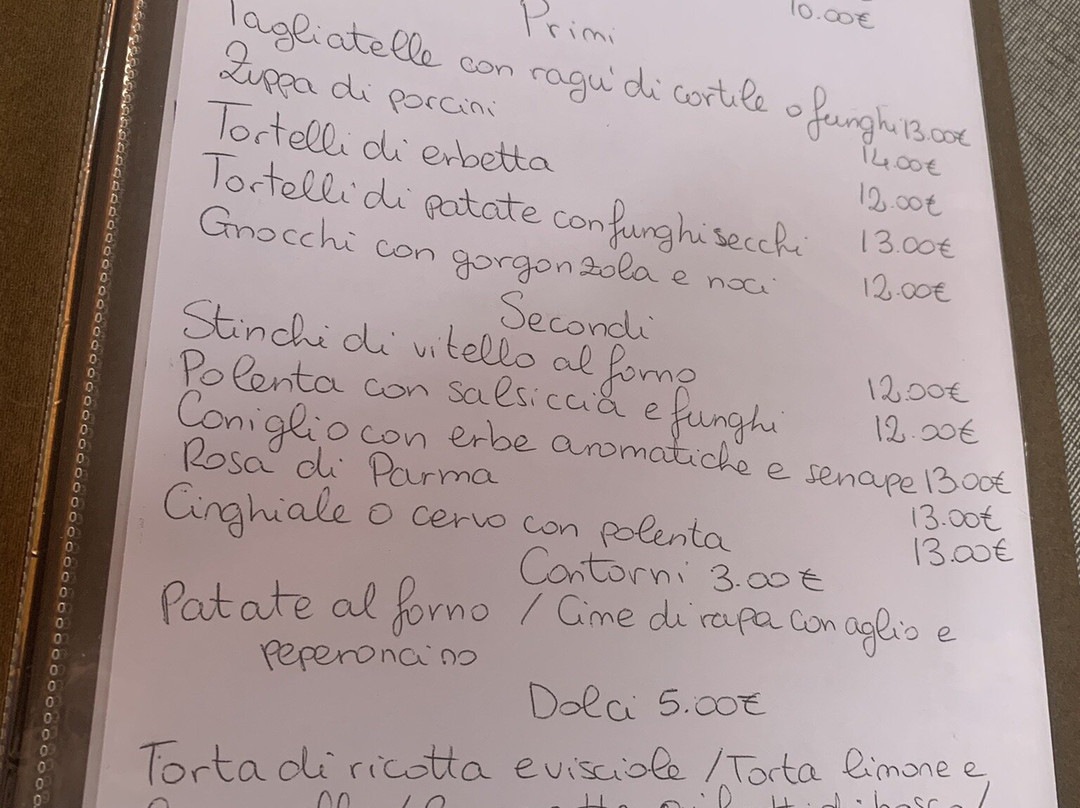 10.00€
Primi
Tagliatelle con ragu' di cortile o funghi 13.00€
Zuppa di porcini 14.00€
Tortelli di erbetta 12.00€
Tortelli di patate con funghi secchi 13.00€
Gnocchi con gorgonzola e noci 12.00€
Secondi
Stinchi di vitello al forno 12.00€
Polenta con salsiccia e funghi 12.00€
Coniglio con erbe aromatiche e senape 13.00€
Rosa di Parma 13.00€
Cinghiale o cervo con polenta 13.00€
Contorni 3.00€
Patate al forno / Cime di rapa con aglio e
peperoncino
Dolci 5.00€
Torta di ricotta e visciole / Torta limone e